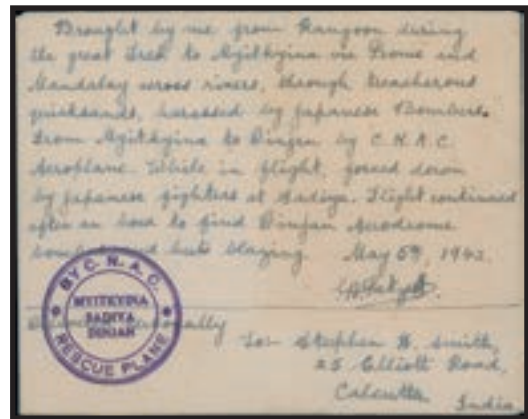 Brought by me from Rangoon during
the great trek to Myitkyina via Prome and
Mandalay across rivers, through treacherous
quicksands, harassed by Japanese Bombers.
From Myitkyina to Dinjan by C.N.A.C.
Aeroplane. While in flight, forced down
by Japanese fighters at Sadiya. Flight continued
after an hour to find Dinjan Aerodrome
bombed and huts blazing. May 1942.
BY C. N. A. C.
MYITKYINA
SADIYA
DINJAN
RESCUE PLANE
personally
To:- Stephen H. Smith,
25 Elliott Road,
Calcutta
India